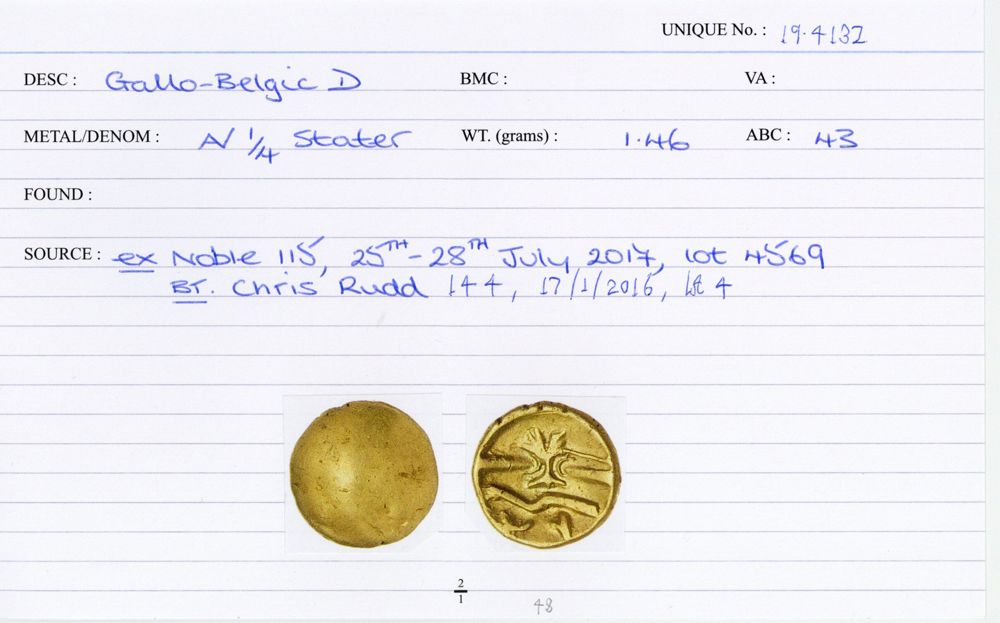 UNIQUE No. : 19.4132
DESC : Gallo-Belgic D BMC : VA :
METAL/DENOM : A/ 1/4 Stater WT. (grams) : 1.46 ABC : 43
FOUND :
SOURCE : ex Noble 115, 25TH-28TH July 2017, lot 4569
BT. Chris Rudd 144, 17/1/2016, lot 4
2/1
48